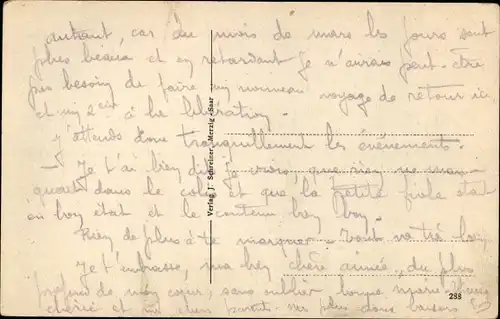 autant, car du mois de mars les jours sont
plus beaux et en retardant je n'aurais peut-être
pas besoin de faire un nouveau voyage de retour ici
et in 2 à la libération.
J'attends donc tranquillement les événements.
Je t'ai bien dit je vois que rien ne man-
quait dans le colis et que la petite fiole était
en bon état et le contenu bien bon.
Rien de plus à te marquer. tout va très bien
Je t'embrasse, ma bien chère aimée, du plus
profond de mon cœur, sans oublier bonne
chérie et mes chers parents plus doux baisers
Verlag J. Schreiner, Merzig-Saar
288